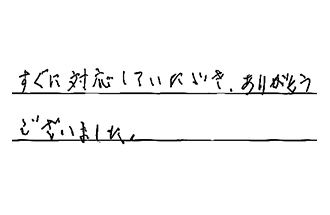 すぐに対応していただき、ありがとう
ございました。